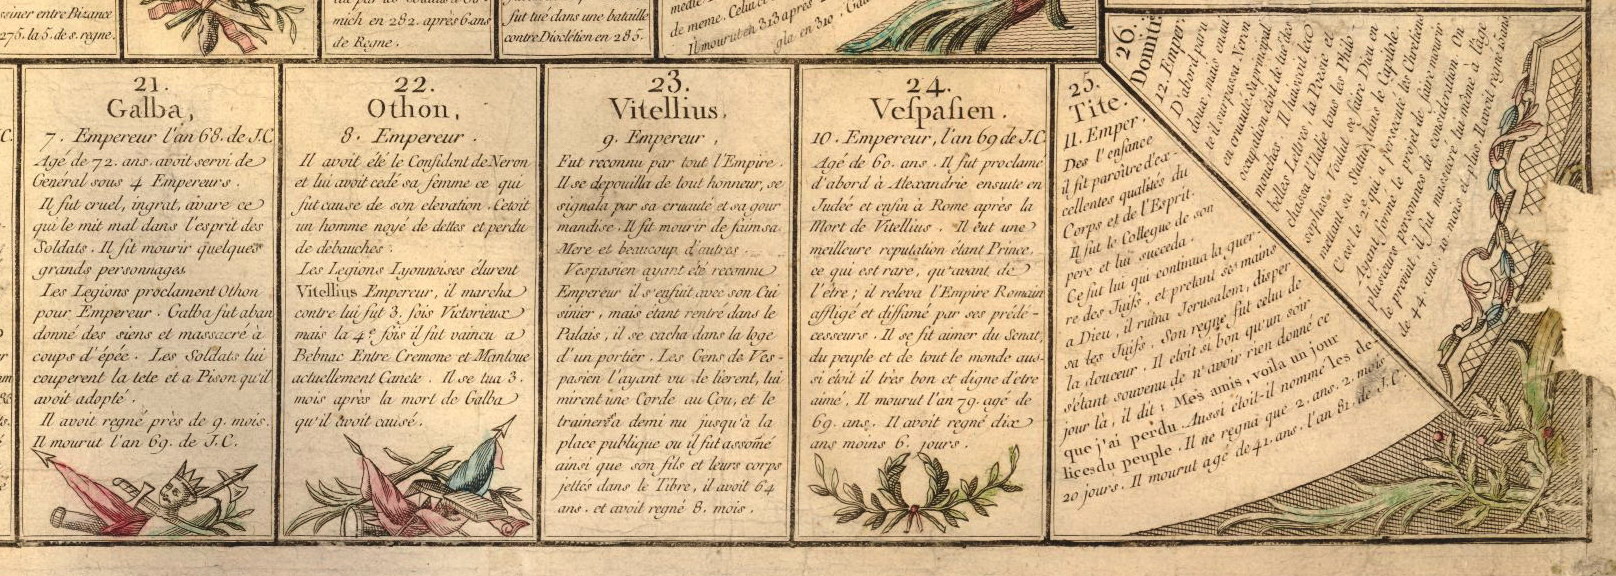 siner entre Bizance
275. la 5. de s. regne.
mich en 282. après 6 ans
de Regne.
fut tué dans une bataille
contre Dioclétien en 285.
de meme.
Il mourut en 313 après
gla en 310.
21.
Galba,
7. Empereur l'an 68. de J.C.
Agé de 72. ans. avoit servi de
Général sous 4 Empereurs.
Il fut cruel, ingrat, avare ce
qui le mit mal dans l'esprit des
Soldats. Il fit mourir quelques
grands personnages
Les Legions proclament Othon
pour Empereur. Galba fut aban
donné des siens et massacré à
coups d'épée. Les Soldats lui
couperent la tete et a Pison qu'il
avoit adopté.
Il avoit regné près de 9. mois.
Il mourut l'an 69. de J.C.
22.
Othon,
8. Empereur.
Il avoit été le Confident de Neron
et lui avoit cedé sa femme ce qui
fut cause de son elevation. C'etoit
un homme noyé de dettes et perdu
de debauches.
Les Legions Lyonnoises élurent
Vitellius Empereur, il marcha
contre lui fut 3. fois Victorieux
mais la 4e. fois il fut vaincu a
Bebriac Entre Cremone et Mantoue
actuellement Canete. Il se tua 3.
mois après la mort de Galba
qu'il avoit causé.
23.
Vitellius,
9. Empereur,
Fut reconnu par tout l'Empire.
Il se depouilla de tout honneur, se
signala par sa cruauté et sa gour
mandise. Il fit mourir de faim sa
Mere et beaucoup d'autres.
Vespasien ayant été reconnu
Empereur il s'enfuit avec son Cui
sinier, mais étant rentré dans le
Palais, il se cacha dans la loge
d'un portier. Les Gens de Ves-
pasien l'ayant vu le lierent, lui
mirent une Corde au Cou, et le
trainer a demi nu jusqu'à la
place publique ou il fut assomé
ainsi que son fils et leurs corps
jettés dans le Tibre, il avoit 64
ans. et avoit regné 8. mois.
24.
Vespasien.
10. Empereur, l'an 69 de J.C.
Agé de 60. ans. Il fut proclamé
d'abord à Alexandrie ensuite en
Judée et enfin à Rome après la
Mort de Vitellius. Il eut une
meilleure reputation étant Prince,
ce qui est rare, qu'avant de
l'etre; il releva l'Empire Romain
affligé et diffamé par ses prédé-
cesseurs. Il se fit aimer du Senat,
du peuple et de tout le monde aus-
si étoit il très bon et digne d'etre
aimé. Il mourut l'an 79. agé de
69. ans. Il avoit regné dix
ans moins 6. jours.
25.
Tite.
11. Emper.
Des l'enfance
il fit paroître d'ex-
cellentes qualités du
Corps et de l'Esprit.
Il fut le Collegue de son
pere et lui succeda.
Ce fut lui qui continua la guer-
re des Juifs, et pretant ses mains
a Dieu, il ruina Jerusalem, disper
sa les Juifs. Son regne fut celui de
la douceur. Il etoit si bon qu'un soir
s'étant souvenu de n'avoir rien donné ce
jour là, il dit; Mes amis, voila un jour
que j'ai perdu. Aussi étoit-il nommé les de-
lices du peuple. Il ne regna que 2. ans. 2. mois
20 jours. Il mourut agé de 41. ans. l'an 81. de J.C.
26.
Domitie
12. Emper.
D'abord paru
doux, mais ensui
te il surpassa Neron
en cruauté. Sa principal
occupation étoit de tuer des
mouches. Il haïssoit les
belles Lettres, la Poesie et
chassa d'Italie tous les Philo
sophes. Voulut se faire Dieu en
mettant sa Statue dans le Capitole.
C'est le 2e. qui a persecuté les Chretiens
Ayant formé le projet de faire mourir
plusieurs personnes de consideration. On
le prévint, il fut massacré lui-même à l'age
de 44. ans. 10 mois et plus. Il avoit regné 15 ans